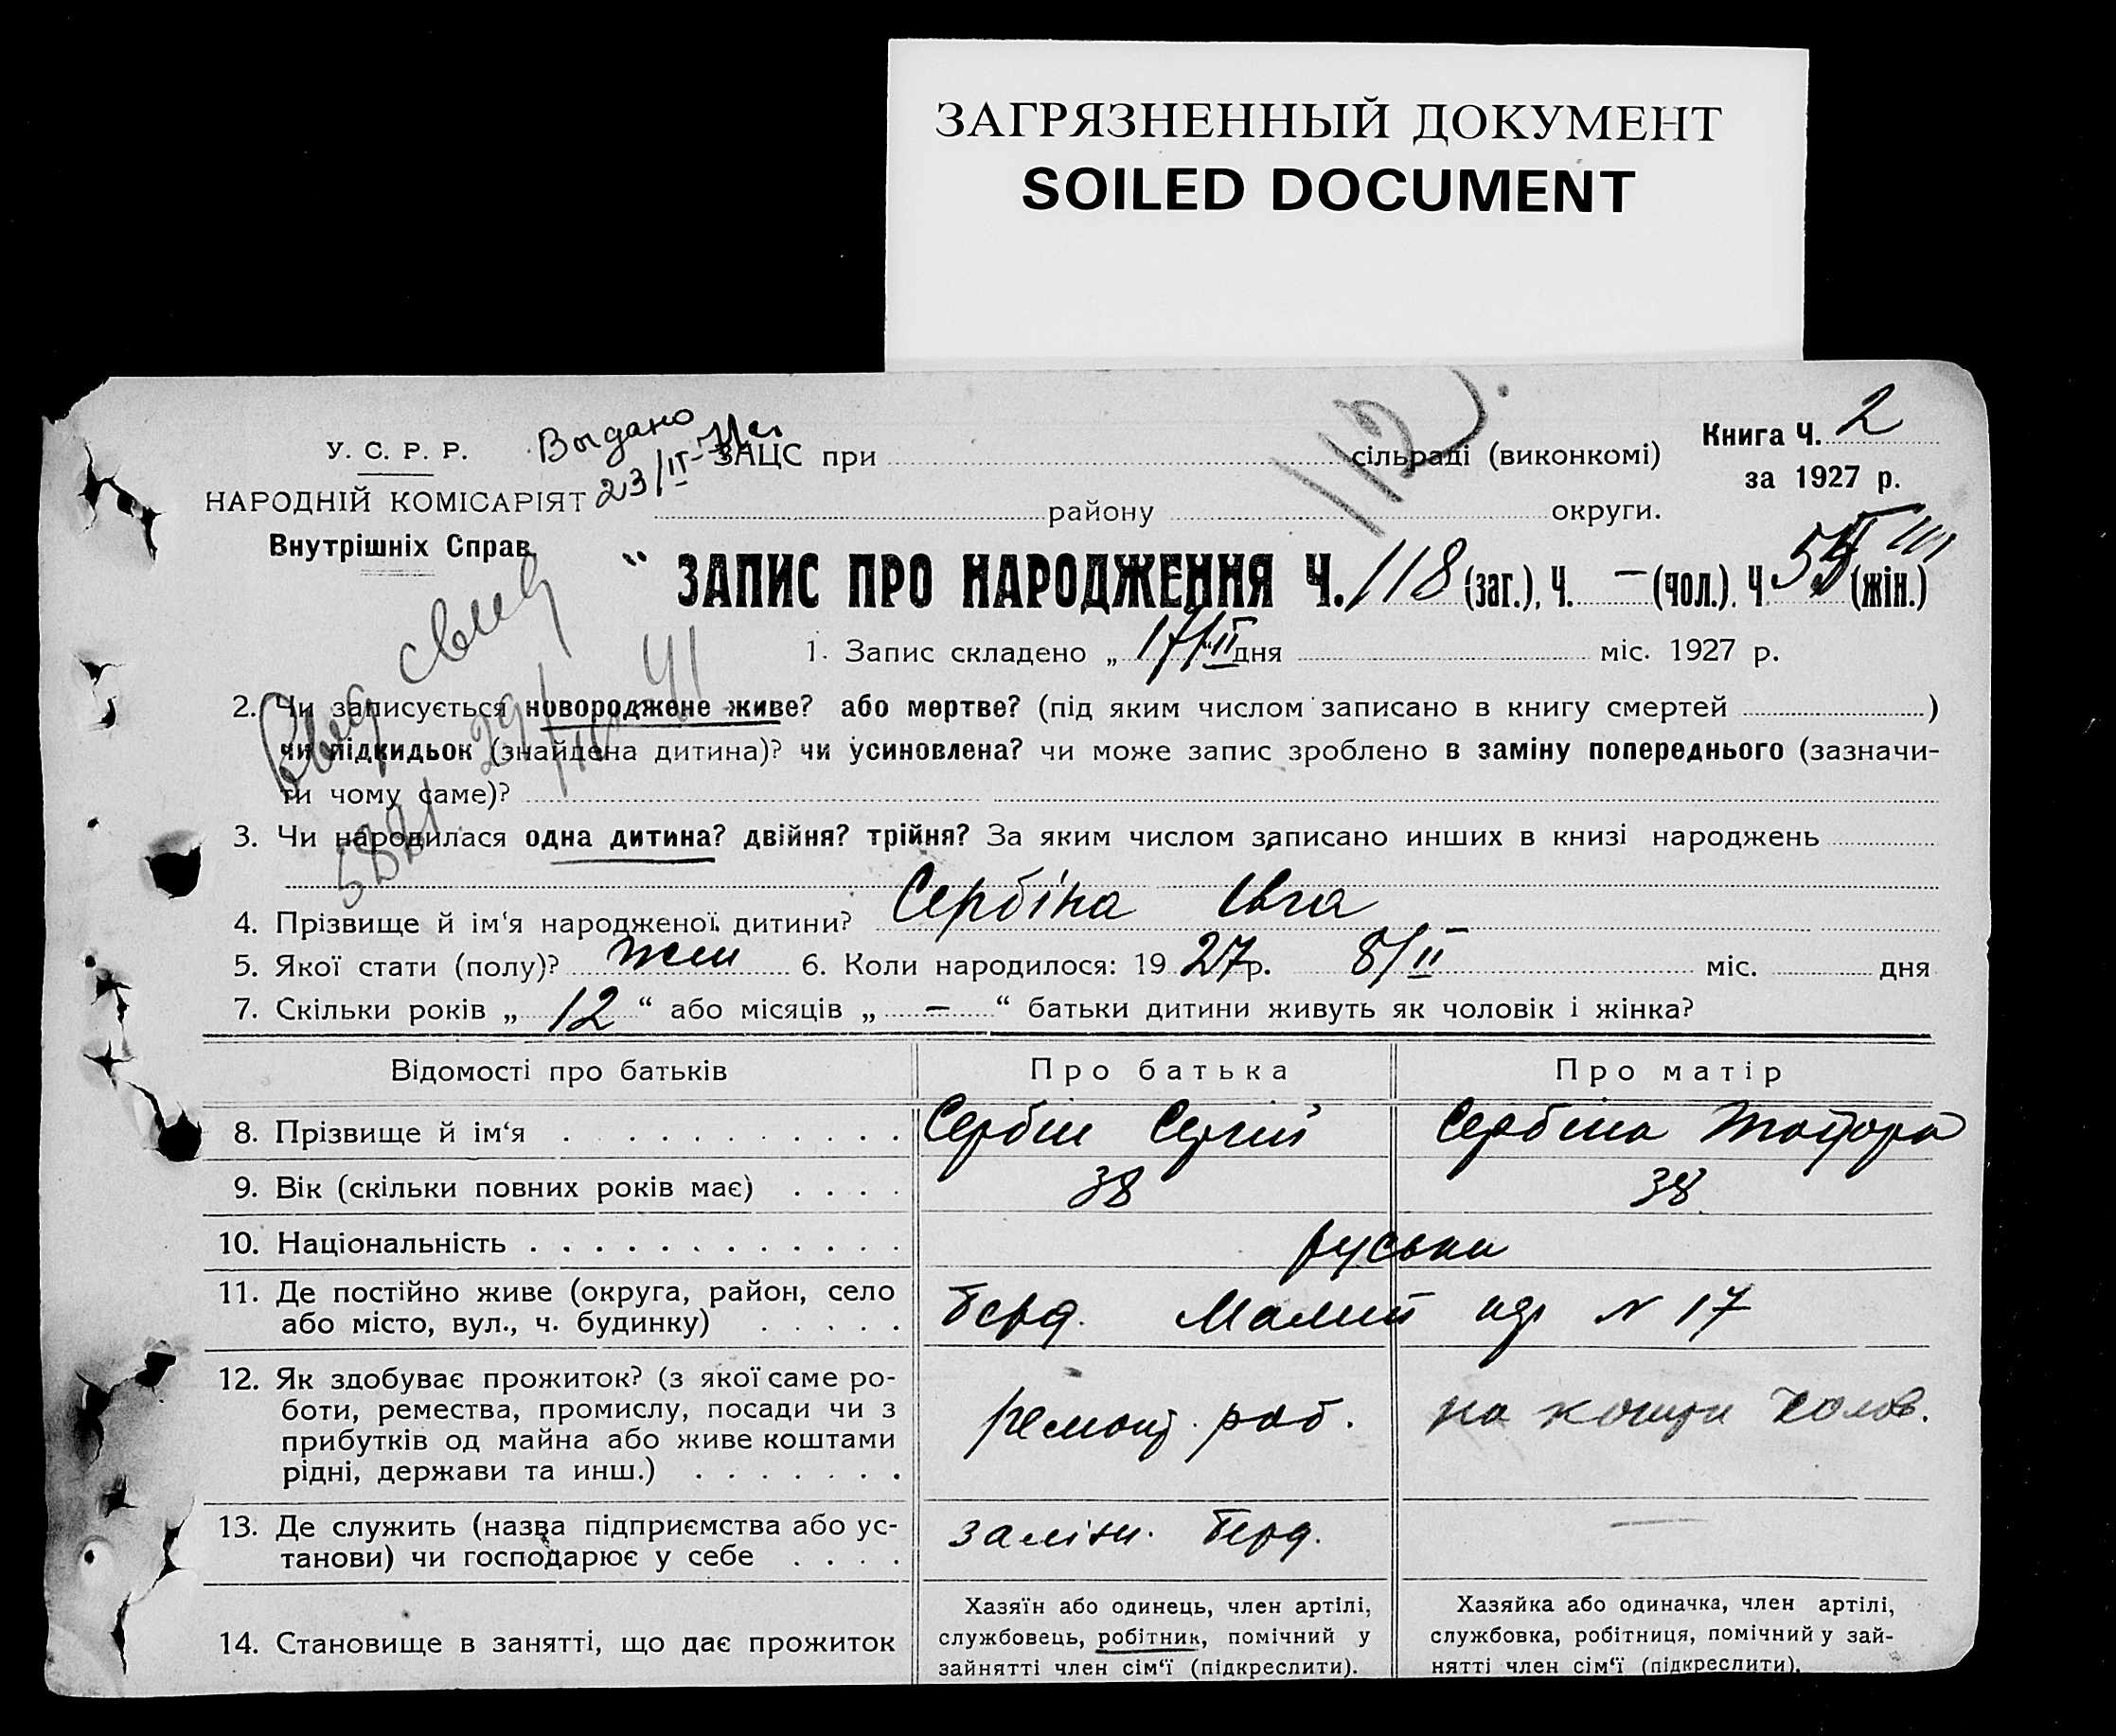 ЗАГРЯЗНЕННЫЙ ДОКУМЕНТ
SOILED DOCUMENT
112.
Книга Ч. 2
за 1927 р.
У. С. Р. Р.
НАРОДНІЙ КОМІСАРІЯТ
Внутрішніх Справ
Выдано
23/II
ЗАЦС при сільраді (виконкомі)
району округи.
"ЗАПИС ПРО НАРОДЖЕННЯ Ч. 118 (заг.), Ч. — (чол.), Ч. (жін.)
1. Запис складено „ 17/II " дня міс. 1927 р.
2. Чи записується новороджене живе? або мертве? (під яким числом записано в книгу смертей )
чи підкидьок (знайдена дитина)? чи усиновлена? чи може запис зроблено в заміну попереднього (зазначи-
ти чому саме)?
3. Чи народилася одна дитина? двійня? трійня? За яким числом записано инших в книзі народжень
4. Прізвище й ім'я народженої дитини? Сербіна Івга
5. Якої стати (полу)? жін 6. Коли народилося: 19 27 р. 8/II міс. дня
7. Скільки років „ 12 " або місяців „ — " батьки дитини живуть як чоловік і жінка?
Відомості про батьків Про батька Про матір
8. Прізвище й ім'я Сербін Сергій Сербіна
9. Вік (скільки повних років має) 38 38
10. Національність руські
11. Де постійно живе (округа, район, село
або місто, вул., ч. будинку) Берд. Малий № 17
12. Як здобуває прожиток? (з якої саме ро-
боти, ремества, промислу, посади чи з
прибутків од майна або живе коштами
рідні, держави та инш.) ремонт. роб. на кошти чолов.
13. Де служить (назва підприємства або ус-
танови) чи господарює у себе залізн. Берд. —
14. Становище в занятті, що дає прожиток
Хазяїн або одинець, член артілі,
службовець, робітник, помічний у
зайнятті член сім'ї (підкреслити).
Хазяйка або одиначка, член артілі,
службовка, робітниця, помічний у зай-
нятті член сім'ї (підкреслити).